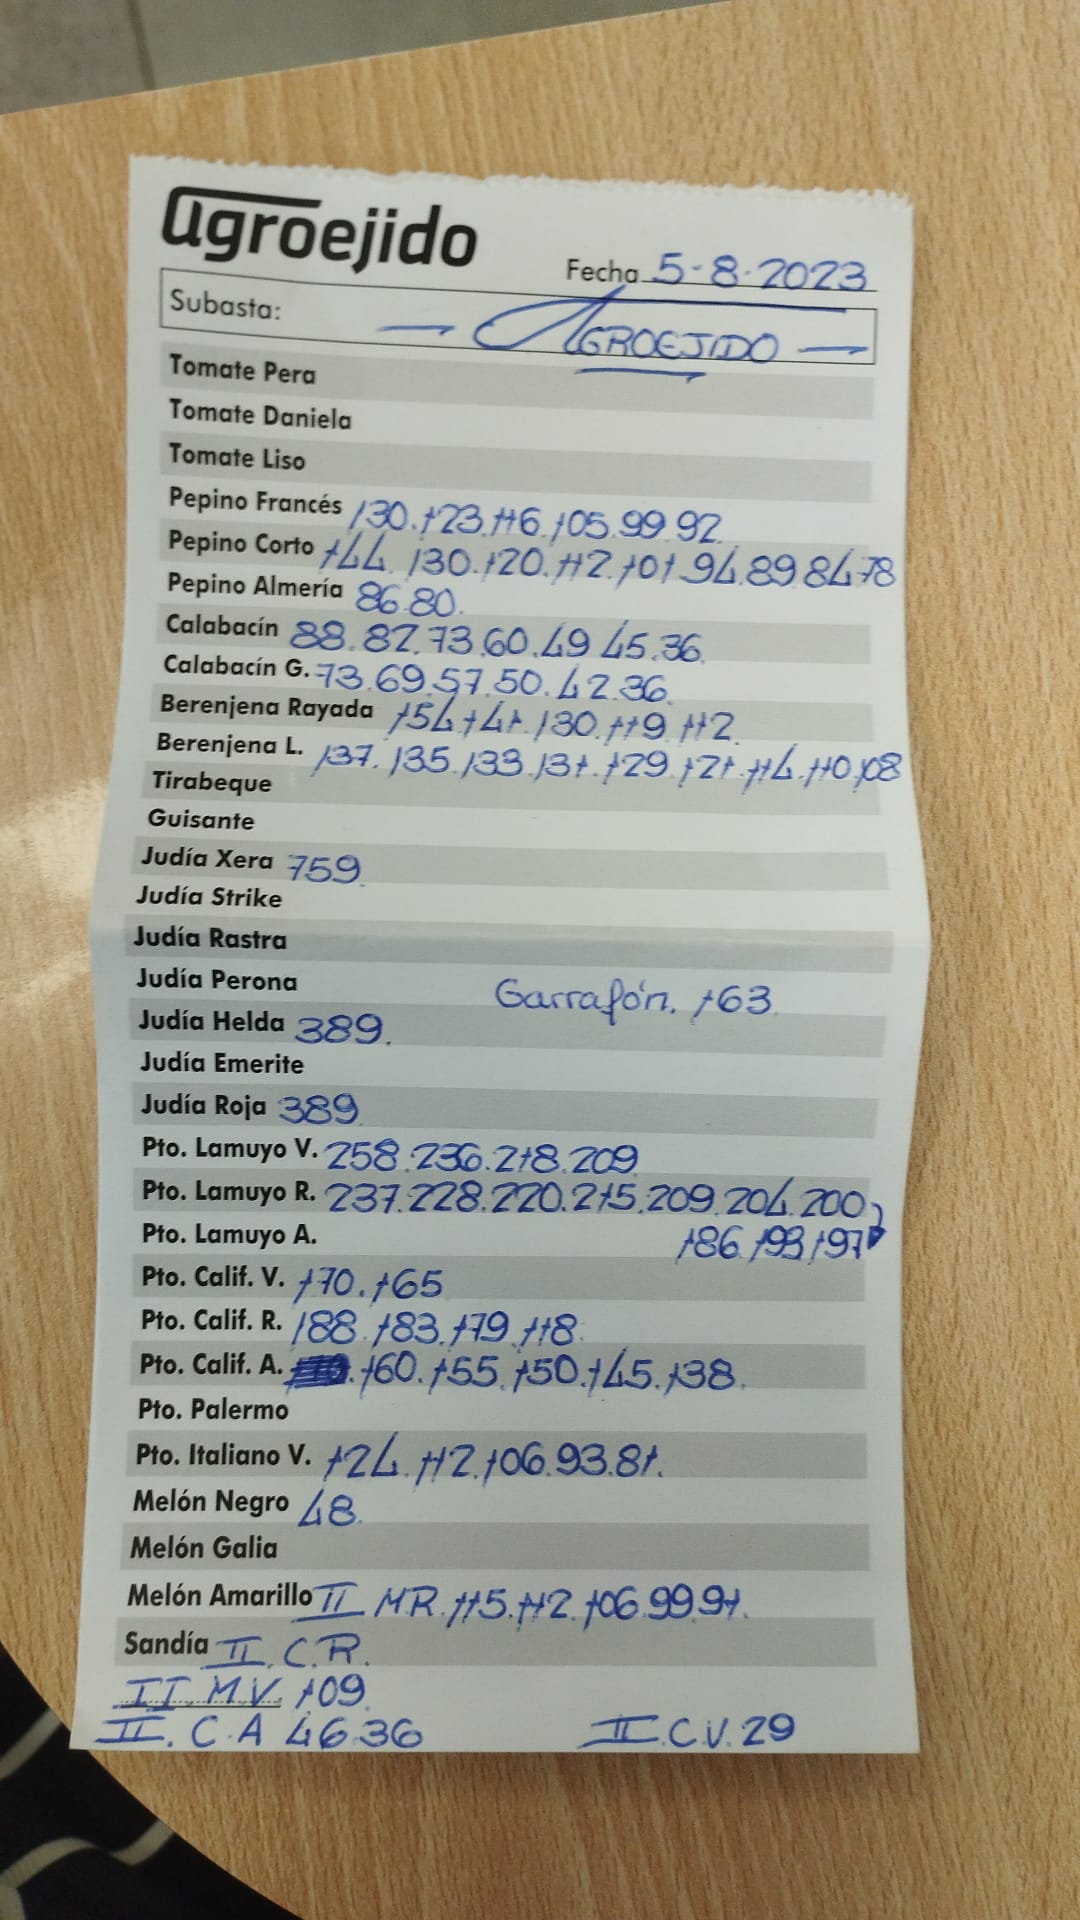 agroejido
Fecha 5-8-2023
Subasta: — AGROEJIDO —
Tomate Pera
Tomate Daniela
Tomate Liso
Pepino Francés 130.123.116.105.99.92.
Pepino Corto 144.130.120.112.101.94.89.84.78
Pepino Almería 86.80.
Calabacín 88.82.73.60.49.45.36.
Calabacín G. 73.69.57.50.42.36.
Berenjena Rayada 154.141.130.119.112.
Berenjena L. 137.135.133.131.129.121.114.110.108
Tirabeque
Guisante
Judía Xera 759.
Judía Strike
Judía Rastra
Judía Perona
Garrafón. 163.
Judía Helda 389.
Judía Emerite
Judía Roja 389.
Pto. Lamuyo V. 258.236.218.209
Pto. Lamuyo R. 237.228.220.215.209.204.200
Pto. Lamuyo A. 186.193.197
Pto. Calif. V. 170.165
Pto. Calif. R. 188.183.179.118.
Pto. Calif. A. 160.155.150.145.138.
Pto. Palermo
Pto. Italiano V. 124.112.106.93.81.
Melón Negro 48.
Melón Galia
Melón Amarillo II M.R. 115.112.106.99.91.
Sandía II. C.R.
II. M.V. 109.
II. C.A 46.36
II.C.V. 29